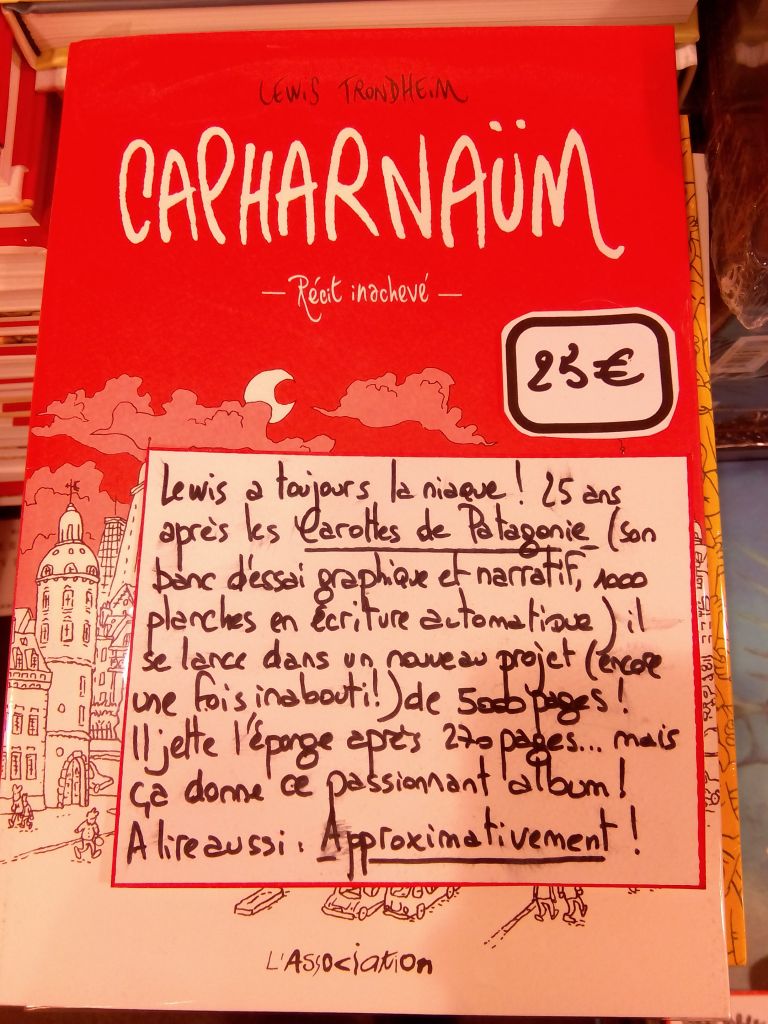 LEWIS TRONDHEIM
CAPHARNAÜM
— Récit inachevé —
25 €
Lewis a toujours la niaque ! 25 ans
après les Carottes de Patagonie (son
banc d'essai graphique et narratif, 1000
planches en écriture automatique) il
se lance dans un nouveau projet (encore
une fois inabouti!) de 5000 pages !
Il jette l'éponge après 270 pages... mais
ça donne ce passionnant album !
A lire aussi : Approximativement !
L'ASSOCIATION